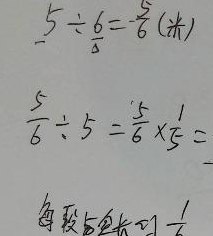 5 ÷ 6 = 5/6 (米)
5/6 ÷ 5 = 5/6 × 1/5 =
每段占全长的 1/6